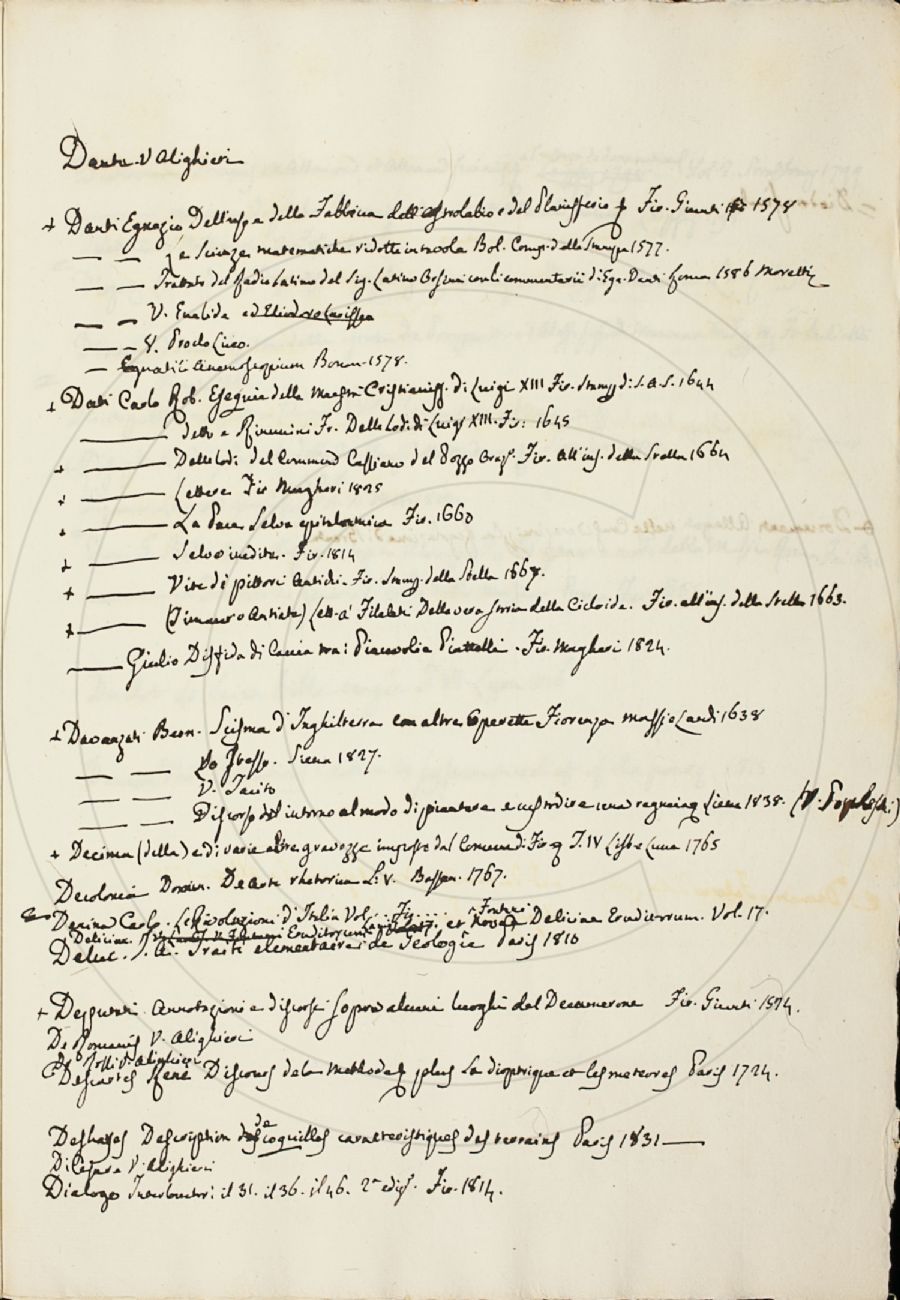 Dante V Alighieri
+ Danti Egnazio Dell'uso e della Fabbrica dell'Astrolabio e del Planisferio Fir. Giunti 1578
— — Le Scienze matematiche ridotte in tavola Bol. Comp. della Stampa 1577.
— — Trattato del Radio Latino del Sig. Latino Orsini con li commentarii di Egn. Danti Roma 1586 Moretti
— — V. Euclide ed Eliodoro Larisseo
— — V. Proclo Lico.
— Egnatii Anemoscopium Bonon. 1578.
+ Dati Carlo Rob. Esequie della Maestà Cristianiss. di Luigi XIII Fir. Stamp. di S.A.S. 1644
——— detto e Rinuccini Fr. Delle lodi di Luigi XIII. Fir: 1645
+ ——— Delle lodi del Commend Cassiano del Pozzo Oraz.e Fir. All'ins. della Stella 1664
+ ——— Lettere Fir Magheri 1825
+ ——— La Pace Selva epitalamica Fir. 1660
+ ——— Selve inedite. Fir. 1814
+ ——— Vite di pittori Antichi. Fir. Stamp. della Stella 1667.
+ ——— (Timauro Antiate) Lett. a' Filaleti Della vera storia della Cicloide. Fir. all'ins. della Stella 1663.
——— Giulio Disfida di Caccia tra i Piacevoli e Piattelli. Fir. Magheri 1824.
+ Davanzati Bern. Scisma d'Inghilterra con altre Operette Fiorenza Massi e Landi 1638
— — Lo stesso. Siena 1827.
— — V. Tacito
— — Discorso del intorno al modo di piantare e custodire una ragnaia Siena 1838. (V.
+ Decima (della) e di varie altre gravezze imposte dal Comune di Fir. T. IV Lisb e Lucca 1765
Decolonia Domin. De Arte rhetorica L: V. Bassan. 1767.
Denina Carlo. Le Rivolazioni d'Italia Vol... Fir....
Deliciae Eruditorum et Novae Deliciae Eruditorrum. Vol. 17.
Deluc. J. A. Traité elementaire de Geologie Paris 1810
+ Deputati. Annotazioni e discorsi sopra alcuni luoghi del Decamerone Fir. Giunti 1574.
De Romanis V. Alighieri
De Rossi V. Alighieri
Descartes René Discours de la Methode plus La dioptrique et les meteores Paris 1724.
Deshayes Description des coquilles caracteristiques des terrains Paris 1831 —
Di Cesare V. Alighieri
Dialogo Interlocutori il 31. il 36. il 46. 2a ediz. Fir. 1814.